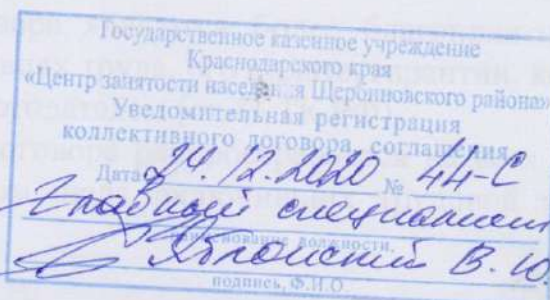 Государственное казенное учреждение
Краснодарского края
«Центр занятости населения Щербиновского района»
Уведомительная регистрация
коллективного договора, соглашения
Дата 24.12.2020 № 44-С
Главный специалист
наименование должности,
В. Ю.
подпись, Ф.И.О.